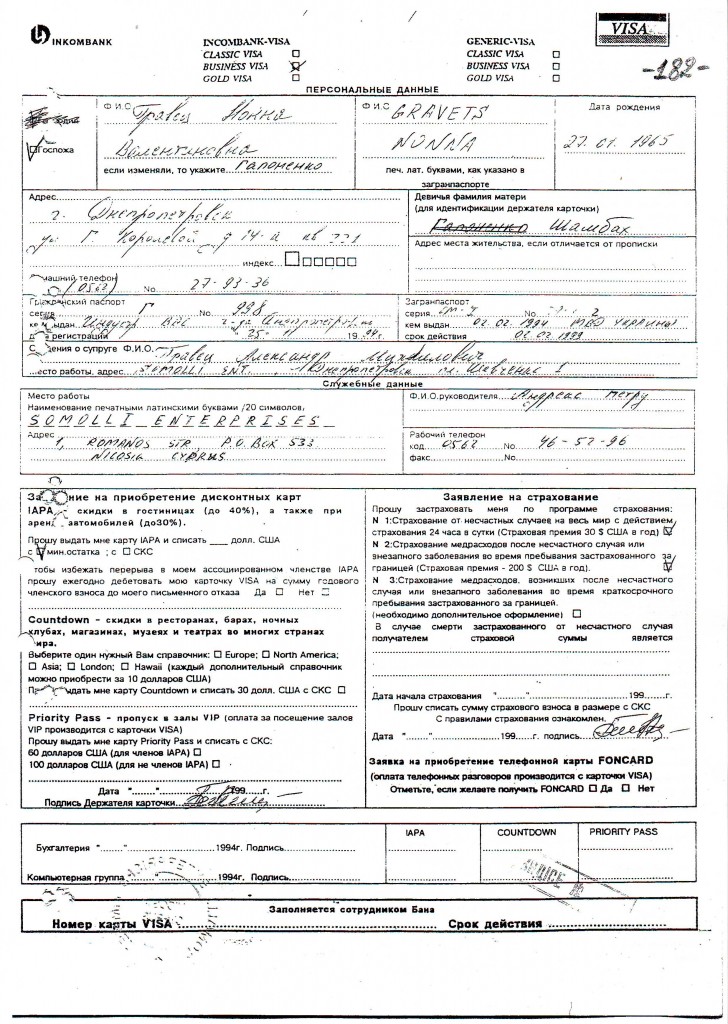 INKOMBANK
INCOMBANK-VISA
CLASSIC VISA □
BUSINESS VISA
GOLD VISA □
GENERIC-VISA
CLASSIC VISA □
BUSINESS VISA □
GOLD VISA □
VISA
-182-
ПЕРСОНАЛЬНЫЕ ДАННЫЕ
Госпожа
Ф.И.О. Гравец Нонна
Валентиновна
если изменяли, то укажите Гапоненко
Ф.И.О. GRAVETS
NONNA
печ. лат. буквами, как указано в
загранпаспорте
Дата рождения
27.01.1965
Адрес
г. Днепропетровск
ул. Г. Королевой д 14-а кв 331
индекс □□□□□□
Девичья фамилия матери
(для идентификации держателя карточки)
Гапоненко Шамбах
Адрес места жительства, если отличается от прописки
машний телефон
(0562) No 27-93-36
Гражданский паспорт
серия Г No 998
кем выдан
регистрации "25" 11 19 94г.
Загранпаспорт
серия No
кем выдан 02.02.1994 МВД Украины
срок действия 02.02.1999
С ения о супруге Ф.И.О. Гравец Александр Михайлович
есто работы, адрес SOMOLLI ENT., г. Днепропетровск пл. Шевченко 1
Служебные данные
Место работы
Наименование печатными латинскими буквами /20 символов,
SOMOLLI ENTERPRISES
Адрес
1, ROMANOS STR., P.O. BOX 533
NICOSIA CYPRUS
Ф.И.О.руководителя Андреас Петру
Рабочий телефон
код 0562 No 46-52-96
факс No
За ение на приобретение дисконтных карт
IAPA - скидки в гостиницах (до 40%), а также при
арен автомобилей (до30%).
Прошу выдать мне карту IAPA и списать ____ долл. США
с □ мин.остатка ; с □ СКС
тобы избежать перерыва в моем ассоциированном членстве IAPA
прошу ежегодно дебетовать мою карточку VISA на сумму годового
членского взноса до моего письменного отказа Да □ Нет □
Countdown - скидки в ресторанах, барах, ночных
клубах, магазинах, музеях и театрах во многих странах
ира.
Выберите один нужный Вам справочник: □ Europe; □ North America;
□ Asia; □ London; □ Hawaii (каждый дополнительный справочник
можно приобрести за 10 долларов США)
дать мне карту Countdown и списать 30 долл. США с СКС □
Priority Pass - пропуск в залы VIP (оплата за посещение залов
VIP производится с карточки VISA)
Прошу выдать мне карту Priority Pass и списать с СКС:
60 долларов США (для членов IAPA) □
100 долларов США (для не членов IAPA) □
Дата "........" 199.....г.
Подпись Держателя карточки
Заявление на страхование
Прошу застраховать меня по программе страхования:
N 1:Страхование от несчастных случаев на весь мир с действием
страхования 24 часа в сутки (Страховая премия 30 $ США в год)
N 2:Страхование медрасходов после несчастного случая или
внезапного заболевания во время пребывания застрахованного за
границей (Страховая премия - 200 $ США в год).
N 3:Страхование медрасходов, возникших после несчастного
случая или внезапного заболевания во время краткосрочного
пребывания застрахованного за границей.
(необходимо дополнительное оформление) □
В случае смерти застрахованного от несчастного случая
получателем страховой суммы является
Дата начала страхования "........" 199.....г.
Прошу списать сумму страхового взноса в размере с СКС
С правилами страхования ознакомлен.
Дата "........" 199.....г. подпись
Заявка на приобретение телефонной карты FONCARD
(оплата телефонных разговоров производится с карточки VISA)
Отметьте, если желаете получить FONCARD □ Да □ Нет
Бухгалтерия "........" 1994г. Подпись
Компьютерная группа 1994г. Подпись
IAPA
COUNTDOWN
PRIORITY PASS
Заполняется сотрудником Бана
Номер карты VISA Срок действия